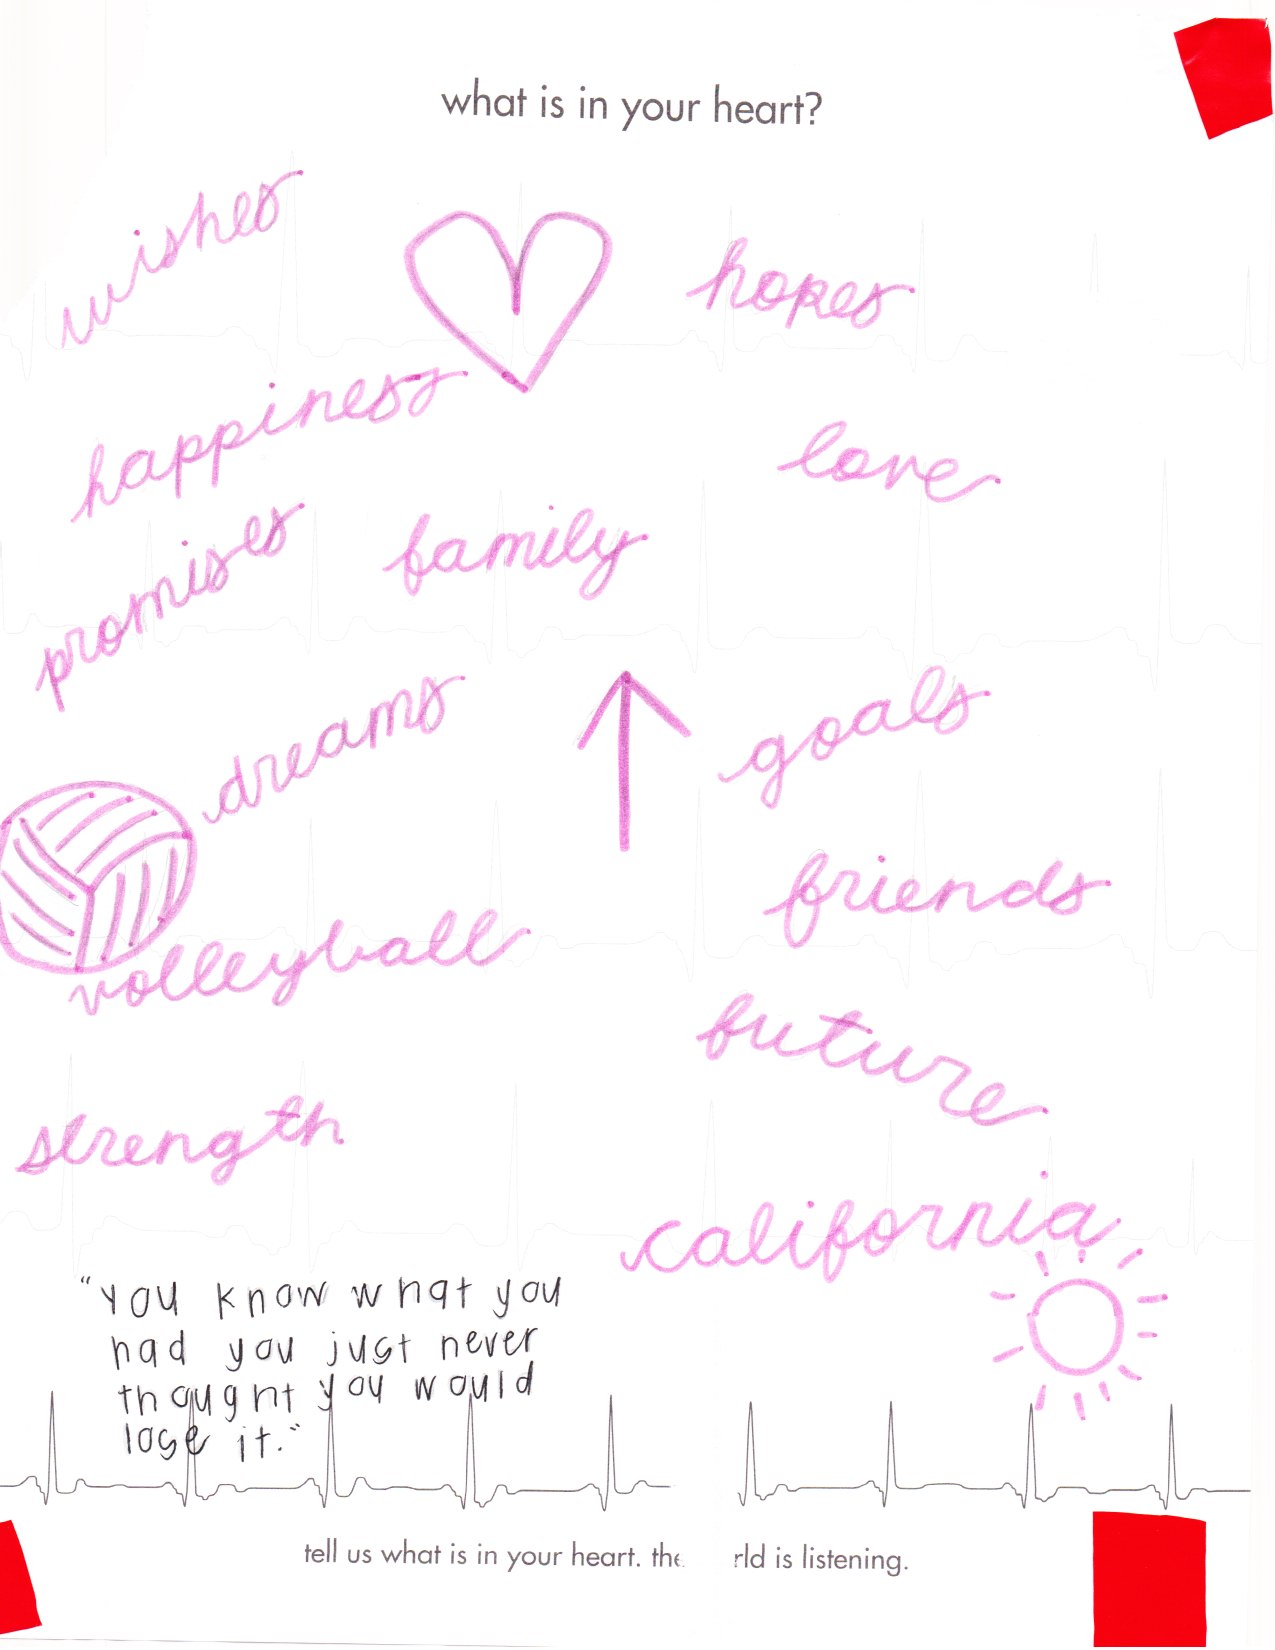 what is in your heart?
wishes
hopes
happiness
love
promises
family
dreams
goals
friends
volleyball
future
strength
california
"you know what you
had you just never
thought you would
lose it."
tell us what is in your heart. the rld is listening.